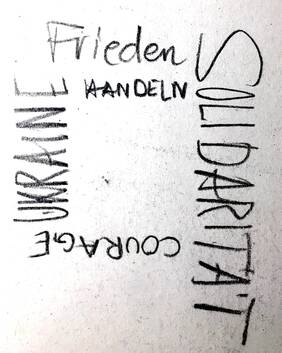 Frieden
HANDELN
SOLIDARITÄT
COURAGE
UKRAINE